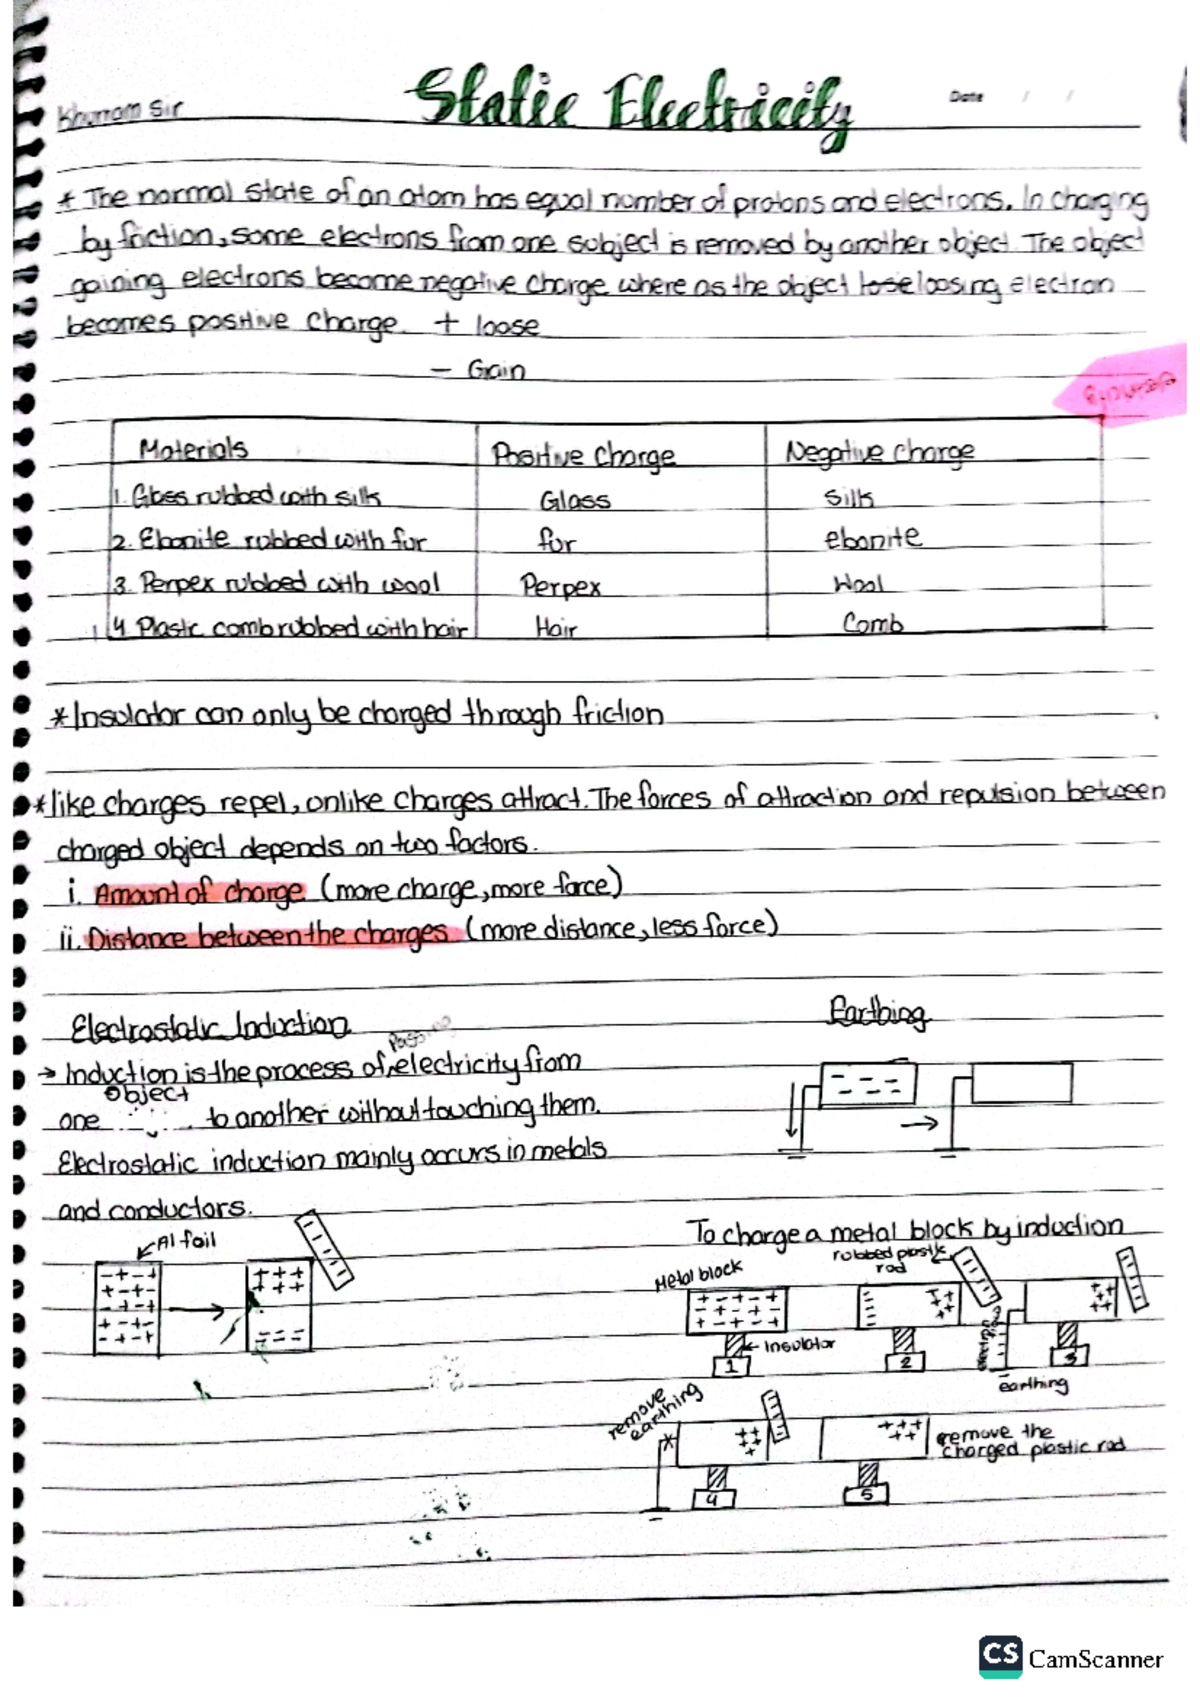 Khurram Sir
Static Electricity
Date / /
* The normal state of an atom has equal number of protons and electrons. In charging
by friction, some electrons from one subject is removed by another object. The object
gaining electrons become negative charge where as the object lose loosing electron
becomes positive charge. + loose
– Gain
Materials Positive Charge Negative charge
1. Glass rubbed with silk Glass silk
2. Ebonite rubbed with fur fur ebonite
3. Perpex rubbed with wool Perpex Wool
4 Plastic comb rubbed with hair Hair Comb
* Insulator can only be charged through friction
* like charges repel, unlike charges attract. The forces of attraction and repulsion between
charged object depends on two factors.
i. Amount of charge (more charge, more force)
ii. Distance between the charges (more distance, less force)
Electrostatic Induction
→ Induction is the process of passing electricity from
one object to another without touching them.
Electrostatic induction mainly occurs in metals
and conductors.
Al foil
Earthing
To charge a metal block by induction
Metal block
rubbed plastic
rod
Insulator
1
2
3
earthing
remove
earthing
4
5
remove the
charged plastic rod
CS CamScanner